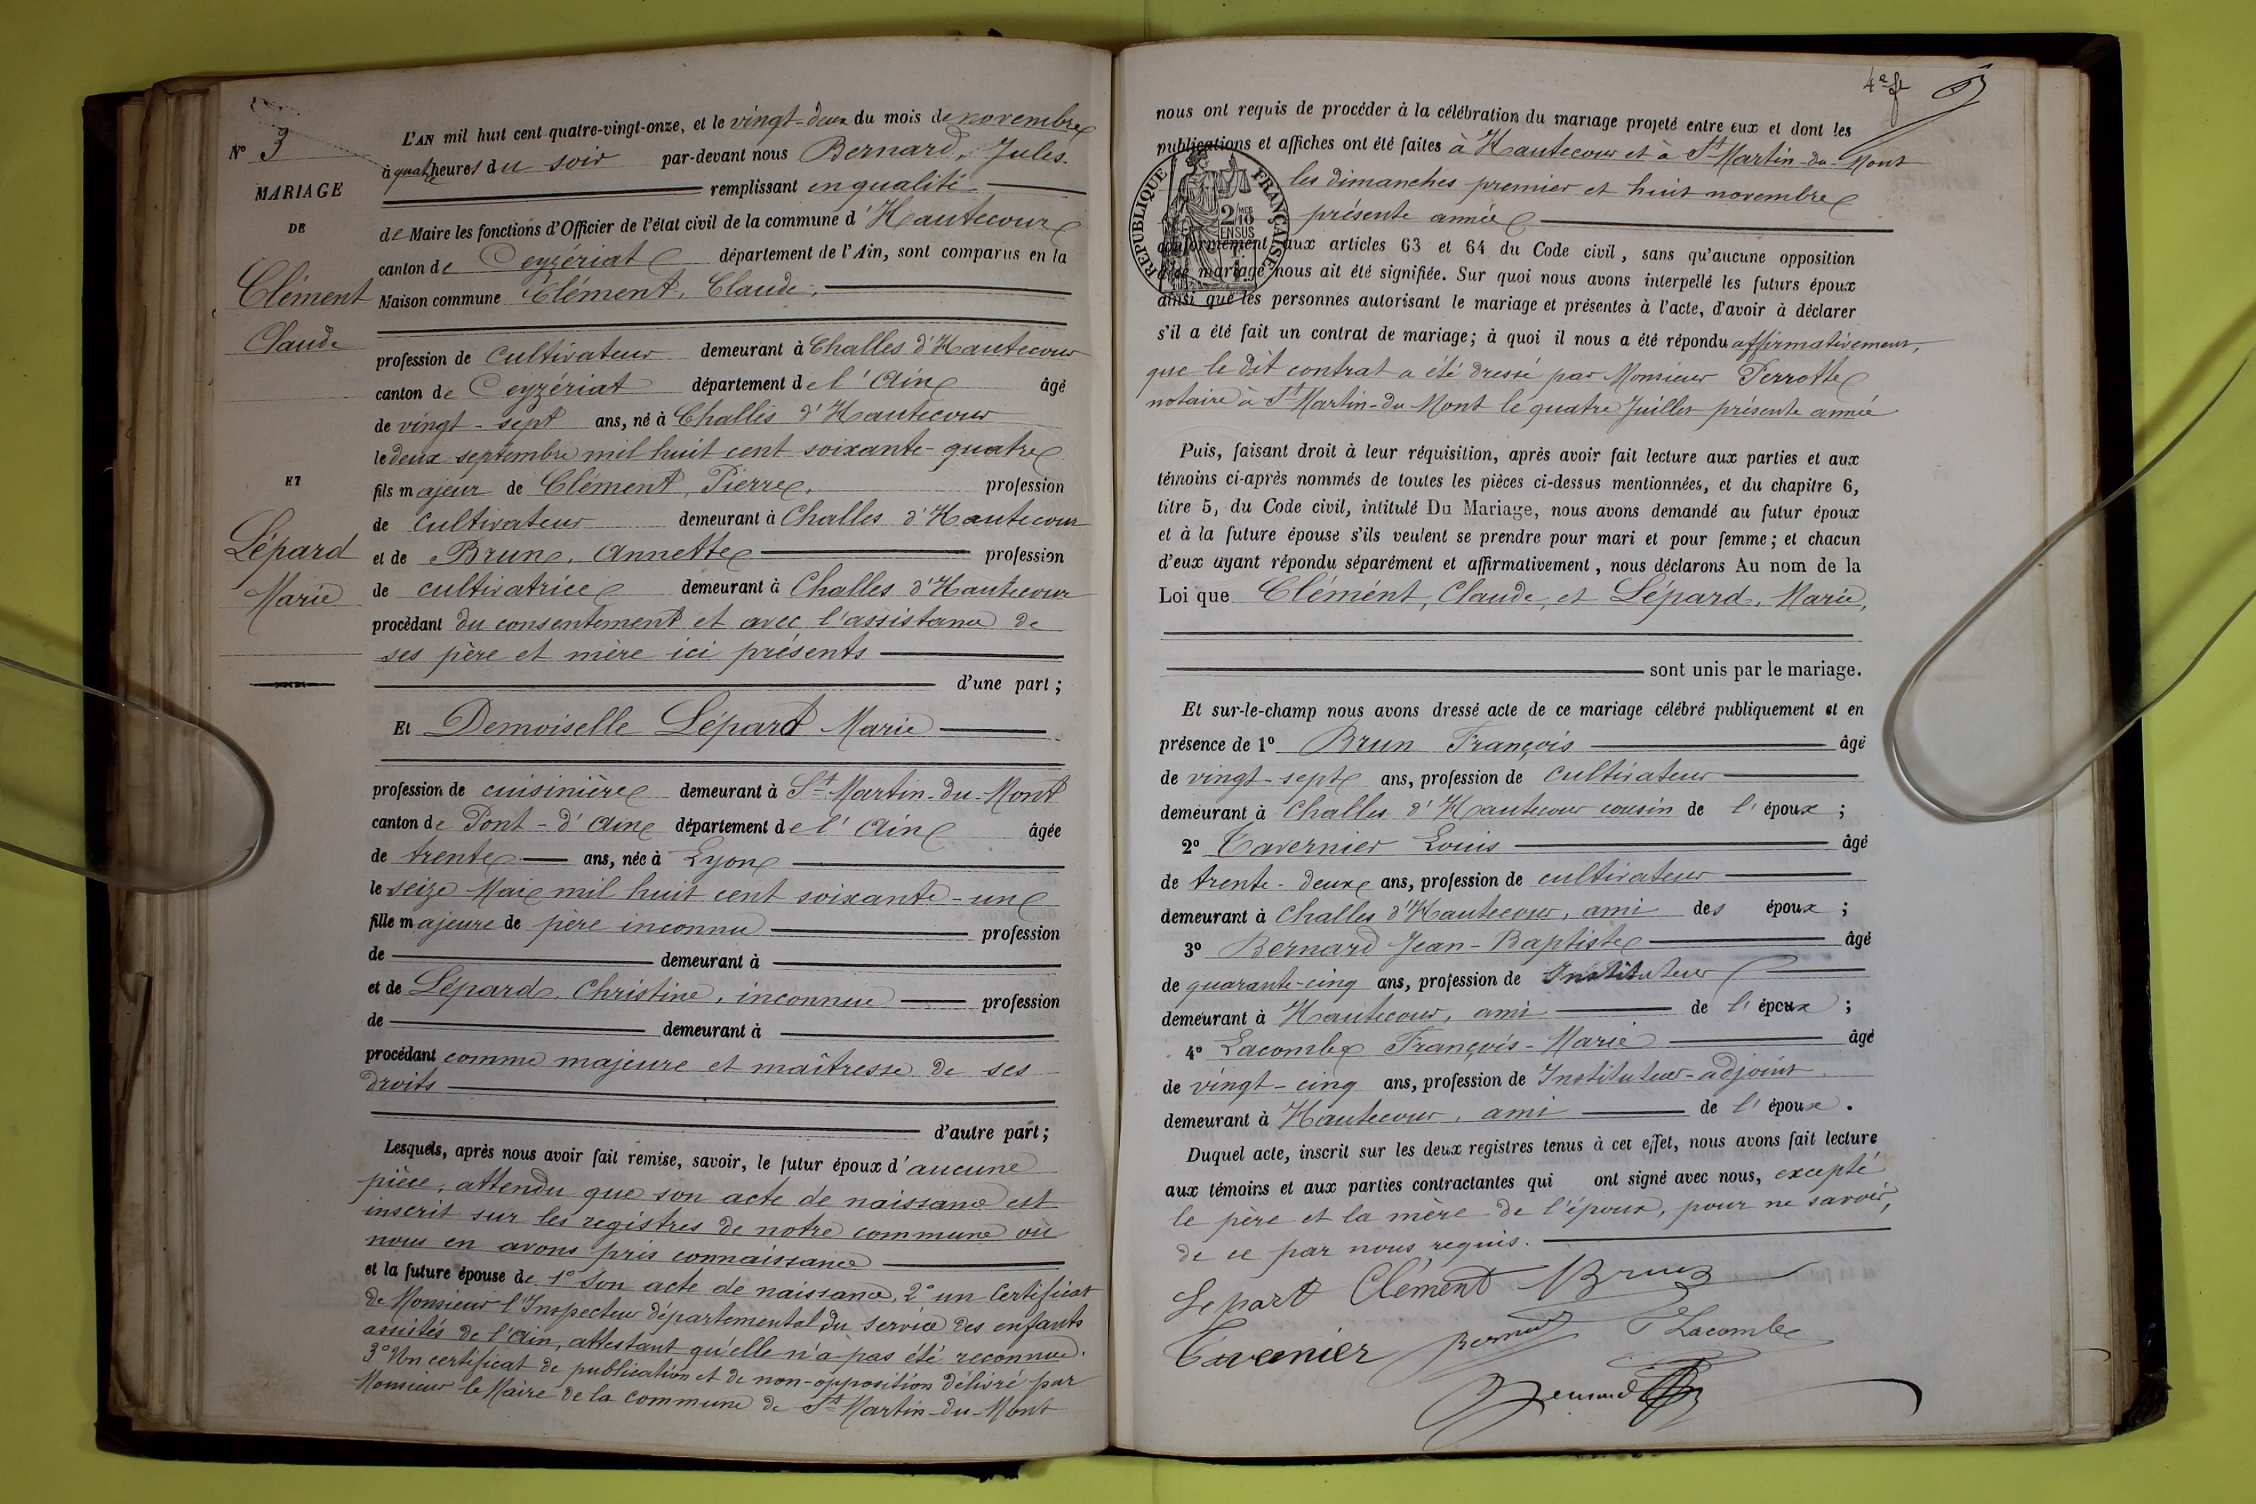 N° 3
MARIAGE
DE
Clément
Claude
ET
Lépard
Marie
L'AN mil huit cent quatre-vingt-onze, et le vingt-deux du mois de novembre
à quatre heures du soir par-devant nous Bernard, Jules.
remplissant en qualité
de Maire les fonctions d'Officier de l'état civil de la commune d'Hautecour
canton de Ceyzériat département de l'Ain, sont comparus en la
Maison commune Clément, Claude,
profession de cultivateur demeurant à Challes d'Hautecour
canton de Ceyzériat département de l'Ain âgé
de vingt-sept ans, né à Challes d'Hautecour
le deux septembre mil huit cent soixante-quatre
fils majeur de Clément, Pierre, profession
de cultivateur demeurant à Challes d'Hautecour
et de Brun, Annette profession
de cultivatrice demeurant à Challes d'Hautecour
procédant du consentement et avec l'assistance de
ses père et mère ici présents
d'une part ;
Et Demoiselle Lépard Marie
profession de cuisinière demeurant à St Martin-du-Mont
canton de Pont-d'Ain département de l'Ain âgée
de trente ans, née à Lyon
le seize Mai mil huit cent soixante-un
fille majeure de père inconnu profession
de demeurant à
et de Lépard, Christine, inconnue profession
de demeurant à
procédant comme majeure et maîtresse de ses
droits
d'autre part ;
Lesquels, après nous avoir fait remise, savoir, le futur époux d'aucune
pièce, attendu que son acte de naissance est
inscrit sur les registres de notre commune où
nous en avons pris connaissance
et la future épouse de 1° Son acte de naissance, 2° un Certificat
de Monsieur l'Inspecteur départemental du service des enfants
assistés de l'Ain, attestant qu'elle n'a pas été reconnue.
3° Un certificat de publication et de non-opposition délivré par
Monsieur le Maire de la commune de St Martin-du-Mont
4e ft
nous ont requis de procéder à la célébration du mariage projeté entre eux et dont les
publications et affiches ont été faites à Hautecour et à St Martin-du-Mont
les dimanches premier et huit novembre
présente année
RÉPUBLIQUE FRANÇAISE
2/10
EN SUS
conformément aux articles 63 et 64 du Code civil, sans qu'aucune opposition
à ce mariage nous ait été signifiée. Sur quoi nous avons interpellé les futurs époux
ainsi que les personnes autorisant le mariage et présentes à l'acte, d'avoir à déclarer
s'il a été fait un contrat de mariage ; à quoi il nous a été répondu affirmativement,
que le dit contrat a été dressé par Monsieur Perrotte
notaire à St Martin-du-Mont le quatre Juillet présente année
Puis, faisant droit à leur réquisition, après avoir fait lecture aux parties et aux
témoins ci-après nommés de toutes les pièces ci-dessus mentionnées, et du chapitre 6,
titre 5, du Code civil, intitulé Du Mariage, nous avons demandé au futur époux
et à la future épouse s'ils veulent se prendre pour mari et pour femme ; et chacun
d'eux ayant répondu séparément et affirmativement, nous déclarons Au nom de la
Loi que Clément, Claude, et Lépard, Marie,
sont unis par le mariage.
Et sur-le-champ nous avons dressé acte de ce mariage célébré publiquement et en
présence de 1° Brun François âgé
de vingt-sept ans, profession de cultivateur
demeurant à Challes d'Hautecour cousin de l'époux ;
2° Tavernier Louis âgé
de trente-deux ans, profession de cultivateur
demeurant à Challes d'Hautecour, ami des époux ;
3° Bernard Jean-Baptiste âgé
de quarante-cinq ans, profession de Instituteur
demeurant à Hautecour, ami de l'époux ;
4° Lacombe François-Marie âgé
de vingt-cinq ans, profession de Instituteur-adjoint
demeurant à Hautecour, ami de l'épouse.
Duquel acte, inscrit sur les deux registres tenus à cet effet, nous avons fait lecture
aux témoins et aux parties contractantes qui ont signé avec nous, excepté
le père et la mère de l'époux, pour ne savoir,
de ce par nous requis.
Lepart Clément Brun
Tavernier Bernard F Lacombe
Bernard